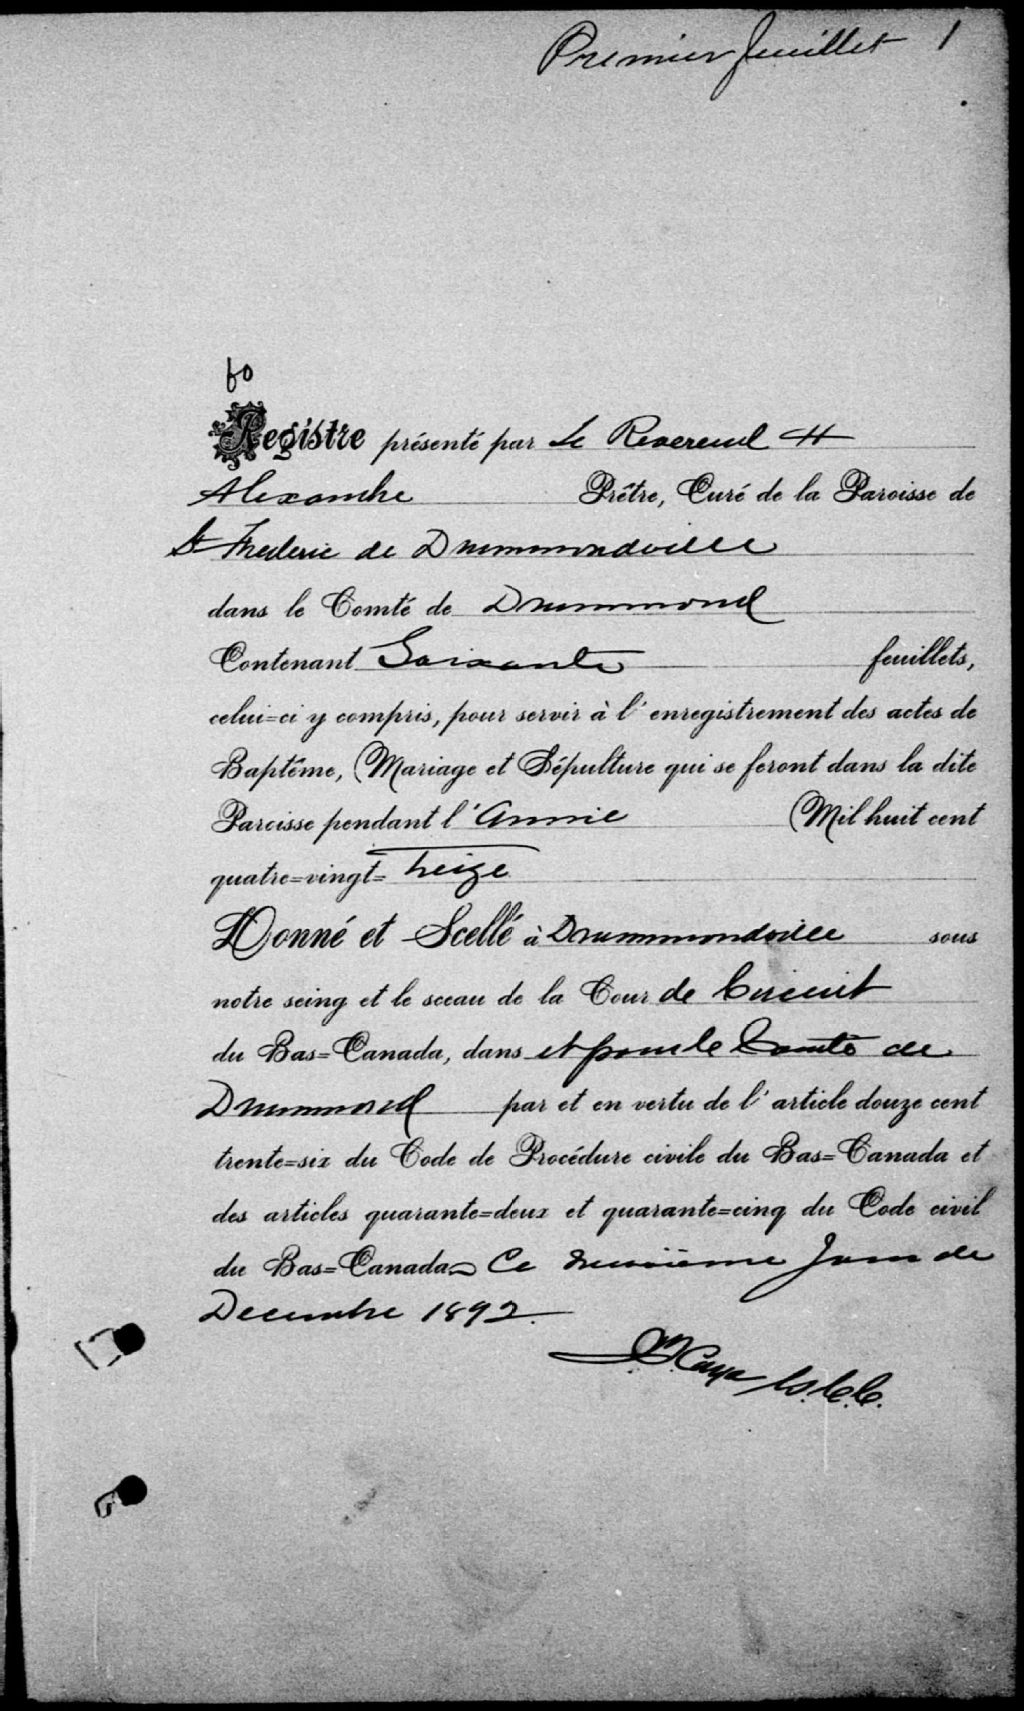 Premier feuillet 1
60
Registre présenté par Le Reverend H
Alexandre Prêtre, Curé de la Paroisse de
St Frederic de Drummondville
dans le Comté de Drummond
Contenant Soixante feuillets,
celui=ci y compris, pour servir à l'enregistrement des actes de
Baptême, Mariage et Sépulture qui se feront dans la dite
Paroisse pendant l'Année Mil huit cent
quatre=vingt= treize
Donné et Scellé à Drummondville sous
notre seing et le sceau de la Cour de Circuit
du Bas=Canada, dans et pour le Comté de
Drummond par et en vertu de l'article douze cent
trente=six du Code de Procédure civile du Bas=Canada et
des articles quarante=deux et quarante=cinq du Code civil
du Bas=Canada Ce Jour de
Decembre 1892.
C.C.C.